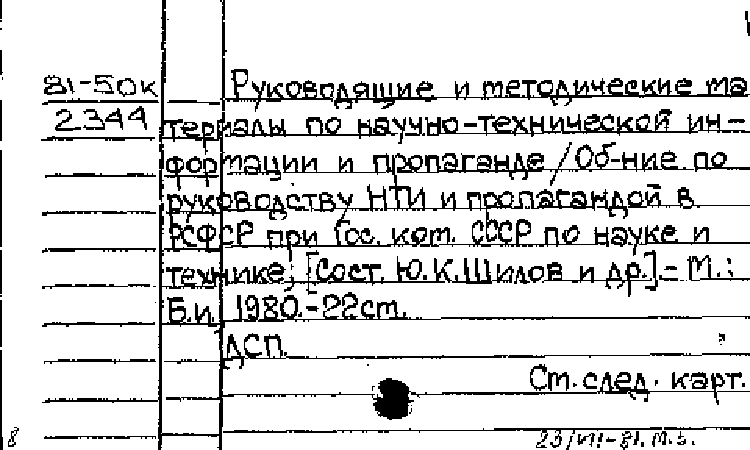 81-50к Руководящие и методические ма
2344 териалы по научно-технической ин-
формации и пропаганде/Об-ние по
руководству НТИ и пропагандой в
РСФСР при Гос. ком. СССР по науке и
технике; [Сост. Ю.К.Шилов и др.].- М.:
Б.и. 1980.-22ст.
ДСП.
Ст. след. карт.
8 23/VII-81. М.З.